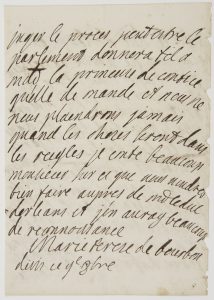 juger le proces peutetre le
parlement donnera til a
md la princesse de contice
quelle de mande et nous ne
nous plaindrons jamais
quand les choses seront dans
les reigles je conte beaucoup
monsieur sur ce que vous voudres
bien faire aupres de mr le duc
dorleans et jen auray beaucoup
de reconnoissance
Marie Terese de Bourbon
ce 9e